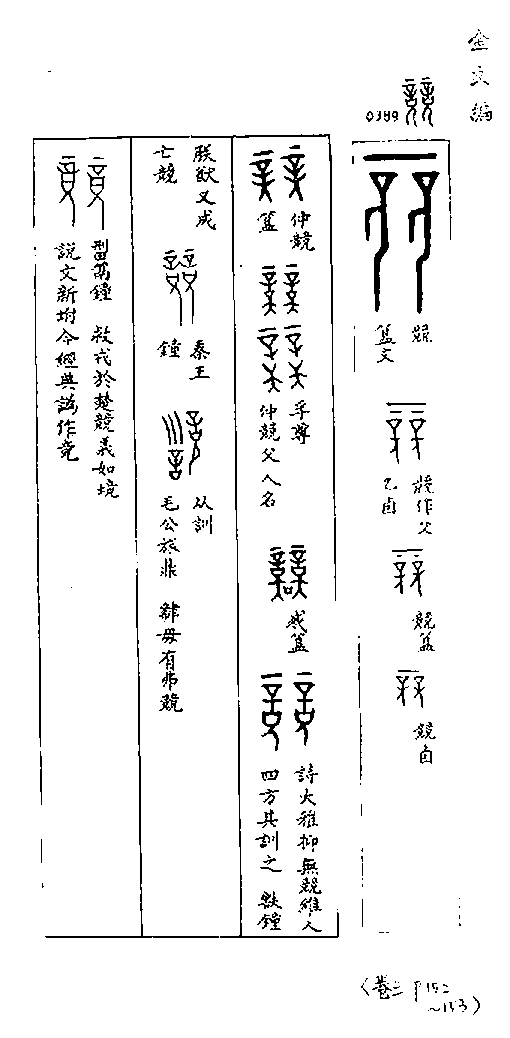 金文編
0389 競
競
簋文
競作父
乙卣
競簋
競卣
仲競
簋
孚尊
仲競父人名
㺇簋
詩大雅抑無競維人
四方其訓之 㝬鐘
朕猷又成
亡競
秦王
鐘
从訓
毛公旅鼎 肆毋有弗競
䣄篙鐘 救戎於楚競義如境
說文新坿今經典譌作竟
〈卷三 P152
~153〉